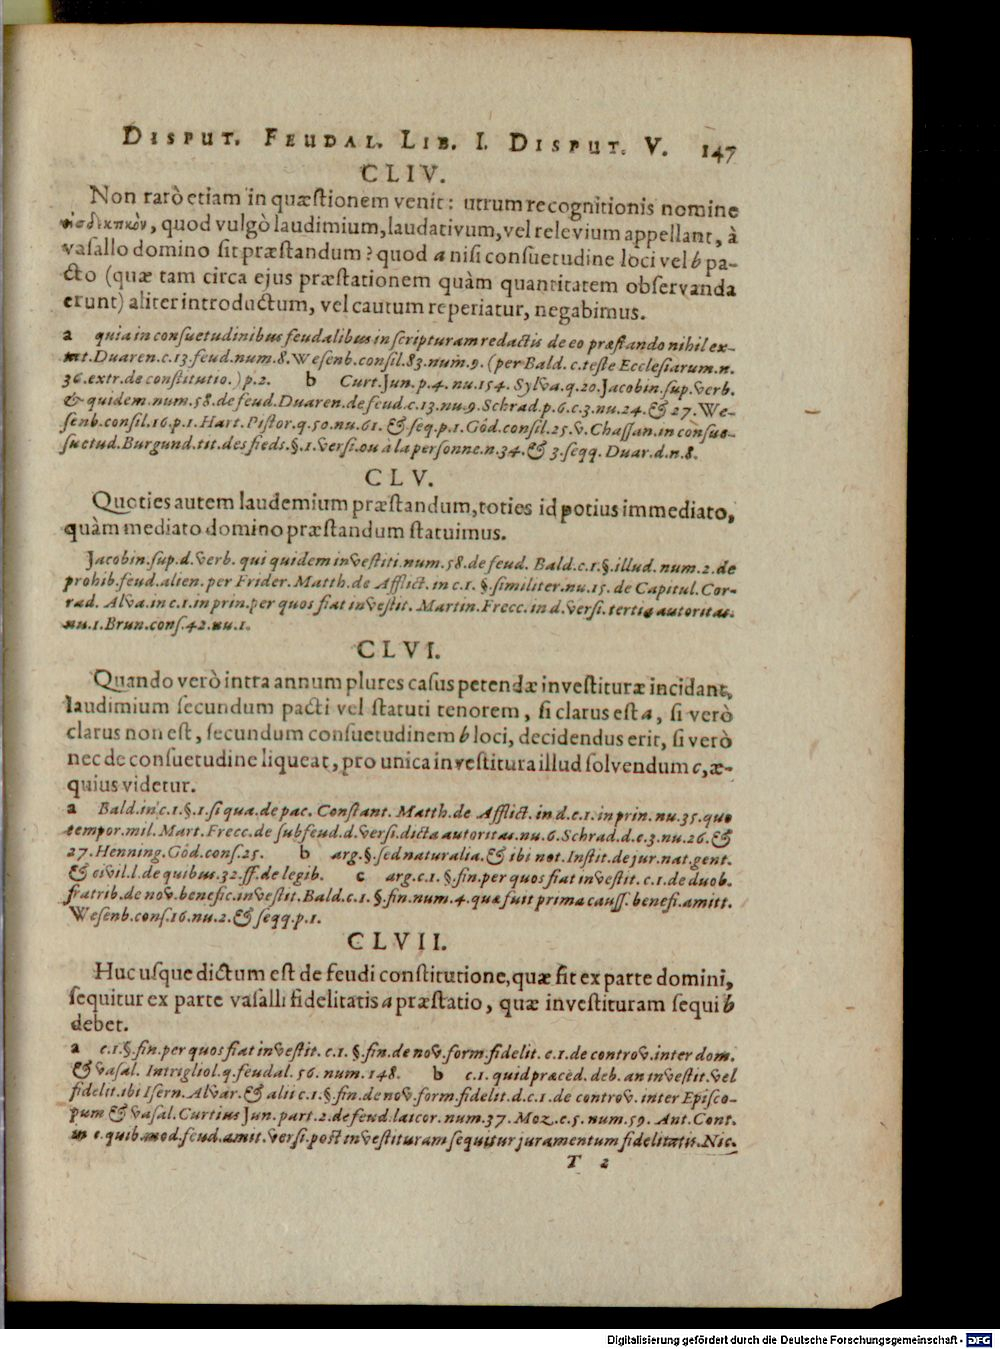 DISPUT. FEUDAL. LIB. I. DISPUT. V. 147
CLIV.
Non rarò etiam in quæstionem venit: utrum recognitionis nomine
quod vulgò laudimium, laudativum, vel relevium appellant, à
vasallo domino sit præstandum? quod a nisi consuetudine loci vel b pa-
cto (quæ tam circa ejus præstationem quàm quantitatem observanda
erunt) aliter introductum, vel cautum reperiatur, negabimus.
a quia in consuetudinibus feudalibus in scripturam redactis de eo præstando nihil ex-
tat. Duaren. c. 13. feud. num. 8. Wesenb. consil. 83. num. 9. (per Bald. c. teste Ecclesiarum. n.
36. extr. de constitutio.) p. 2. b Curt. Jun. p. 4. nu. 154. Sylva. q. 20. Jacobin. sup. verb.
& quidem. num. 58. de feud. Duaren. de feud. c. 13. nu. 9. Schrad. p. 6. c. 3. nu. 24. & 27. We-
senb. consil. 16. p. 1. Hart. Pistor. q. 50. nu. 61. & seq. p. 1. Göd. consil. 25. v. Chassan. in consue-
suetud. Burgund. tit. des fieds. §. 1. versi. ou à la personne. n. 34. & 3. seqq. Duar. d. n. 8.
CLV.
Quoties autem laudemium præstandum, toties id potius immediato,
quàm mediato domino præstandum statuimus.
Jacobin. sup. d. verb. qui quidem investiti. num. 58. de feud. Bald. c. 1. §. illud. num. 2. de
prohib. feud. alien. per Frider. Matth. de Afflict. in c. 1. §. similiter. nu. 15. de Capitul. Cor-
rad. Alva. in c. 1. in prin. per quos fiat investit. Martin. Frecc. in d. versi. tertia autoritas.
nu. 1. Brun. cons. 42. nu. 1.
CLVI.
Quando verò intra annum plures casus petendæ investituræ incidant,
laudimium secundum pacti vel statuti tenorem, si clarus est a, si verò
clarus non est, secundum consuetudinem b loci, decidendus erit, si verò
nec de consuetudine liqueat, pro unica investitura illud solvendum c, æ-
quius videtur.
a Bald. in c. 1. §. 1. si qua. de pac. Constant. Matth. de Afflict. in d. c. 1. in prin. nu. 35. quo
tempor. mil. Mart. Frecc. de subfeud. d. versi. dicta autoritas. nu. 6. Schrad. d. c. 3. nu. 26. &
27. Henning. Göd. cons. 25. b arg. §. sed naturalia. & ibi not. Instit. de jur. nat. gent.
& civil. l. de quibus. 32. ff. de legib. c arg. c. 1. §. fin. per quos fiat investit. c. 1. de duob.
fratrib. de nov. benefic. investit. Bald. c. 1. §. fin. num. 4. quæ fuit prima causs. benefi. amitt.
Wesenb. cons. 16. nu. 2. & seqq. p. 1.
CLVII.
Huc usque dictum est de feudi constitutione, quæ fit ex parte domini,
sequitur ex parte vasalli fidelitatis a præstatio, quæ investituram sequi b
debet.
a c. 1. §. fin. per quos fiat investit. c. 1. §. fin. de nov. form. fidelit. c. 1. de controv. inter dom.
& vasal. Intrigliol. q. feudal. 56. num. 148. b c. 1. quid præced. deb. an investit. vel
fidelit. ibi Isern. Alvar. & alii c. 1. §. fin. de nov. form. fidelit. d. c. 1. de controv. inter Episco-
pum & vasal. Curtius Jun. part. 2. de feud. laicor. num. 37. Moz. c. 5. num. 59. Ant. Cont.
in c. quib. mod. feud. amit. versi. post investituram sequitur juramentum fidelitatis. Nic.
T 2
Digitalisierung gefördert durch die Deutsche Forschungsgemeinschaft - DFG